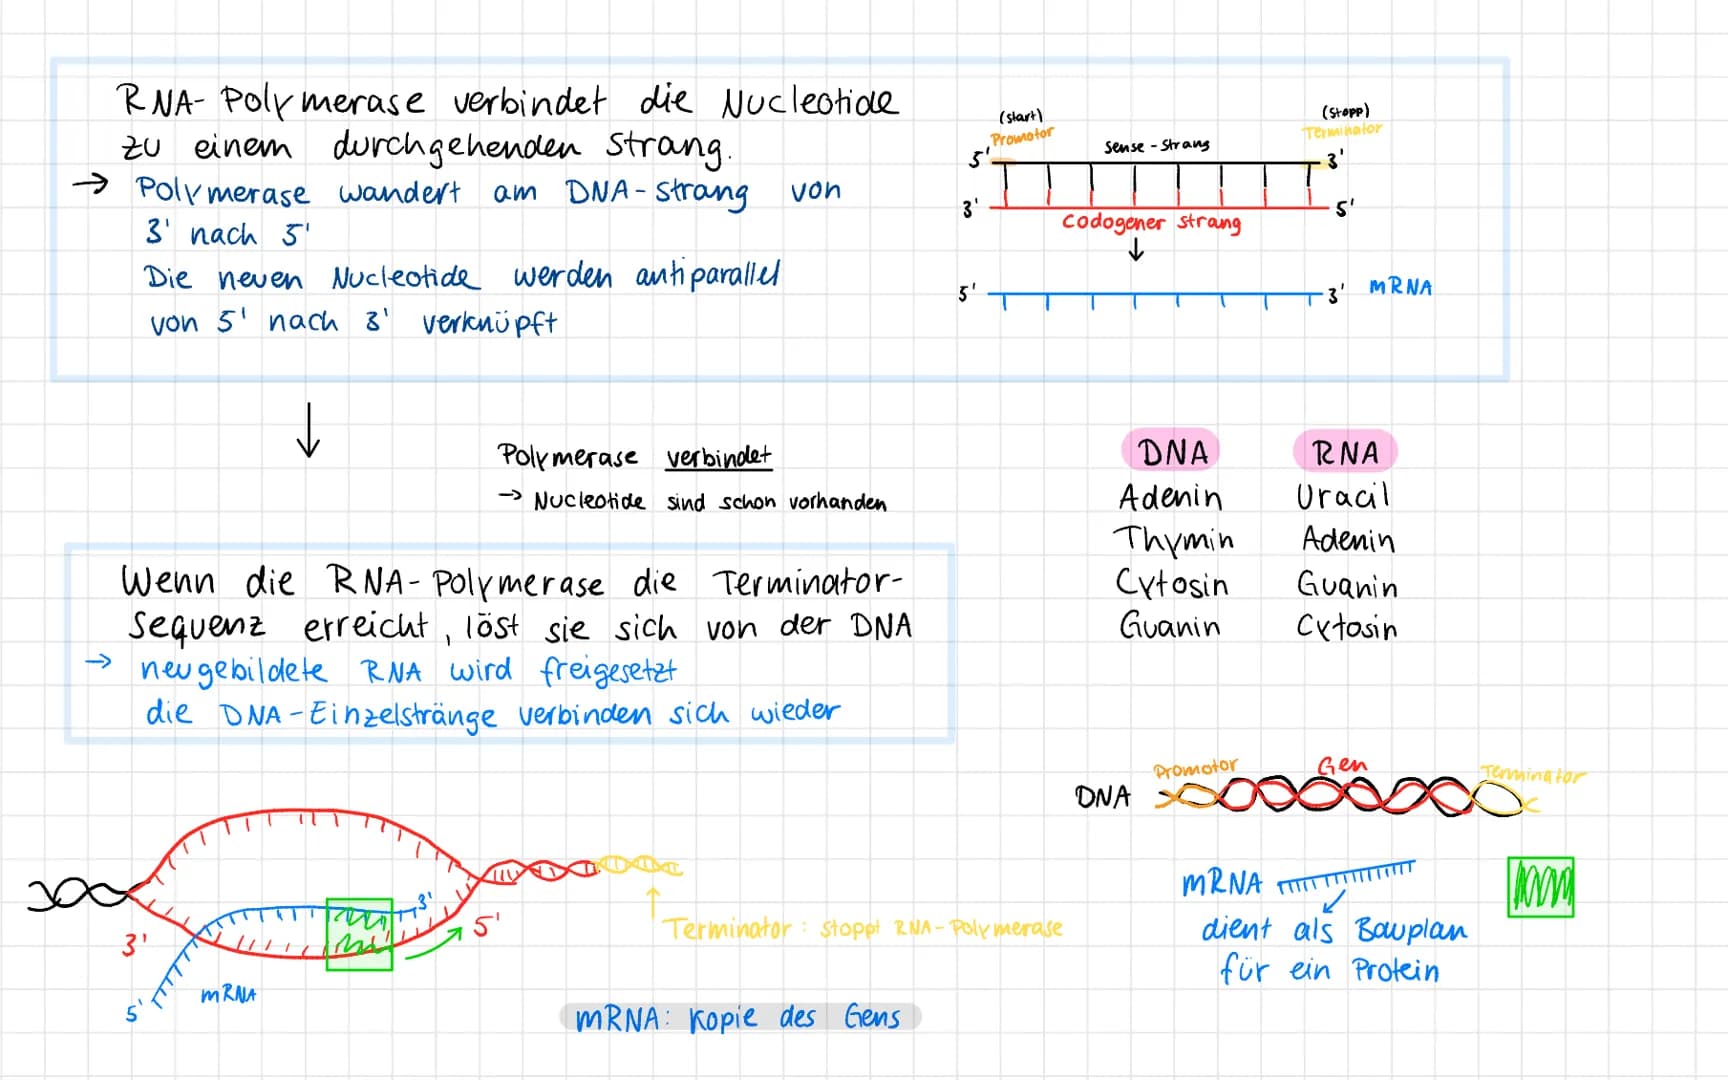 RNA-Polymerase verbindet die Nucleotide
zu einem durchgehenden Strang.
→ Polymerase wandert am DNA-Strang von
3' nach 5'
Die neuen Nucleotide werden antiparallel
von 5' nach 3' verknüpft
(start)
Promotor
(stopp)
Terminator
5'
sense-strang
3'
3'
codogener strang
5'
↓
5'
3'
mRNA
↓
Polymerase verbindet
→ Nucleotide sind schon vorhanden
DNA RNA
Adenin Uracil
Thymin Adenin
Cytosin Guanin
Guanin Cytosin
Wenn die RNA-Polymerase die Terminator-
sequenz erreicht, löst sie sich von der DNA
→ neugebildete RNA wird freigesetzt
die DNA-Einzelstränge verbinden sich wieder
DNA
Promotor
Gen
Terminator
3'
5'
mRNA
3'
5'
Terminator: stoppt RNA-Polymerase
mRNA
dient als Bauplan
für ein Protein
mRNA: Kopie des Gens